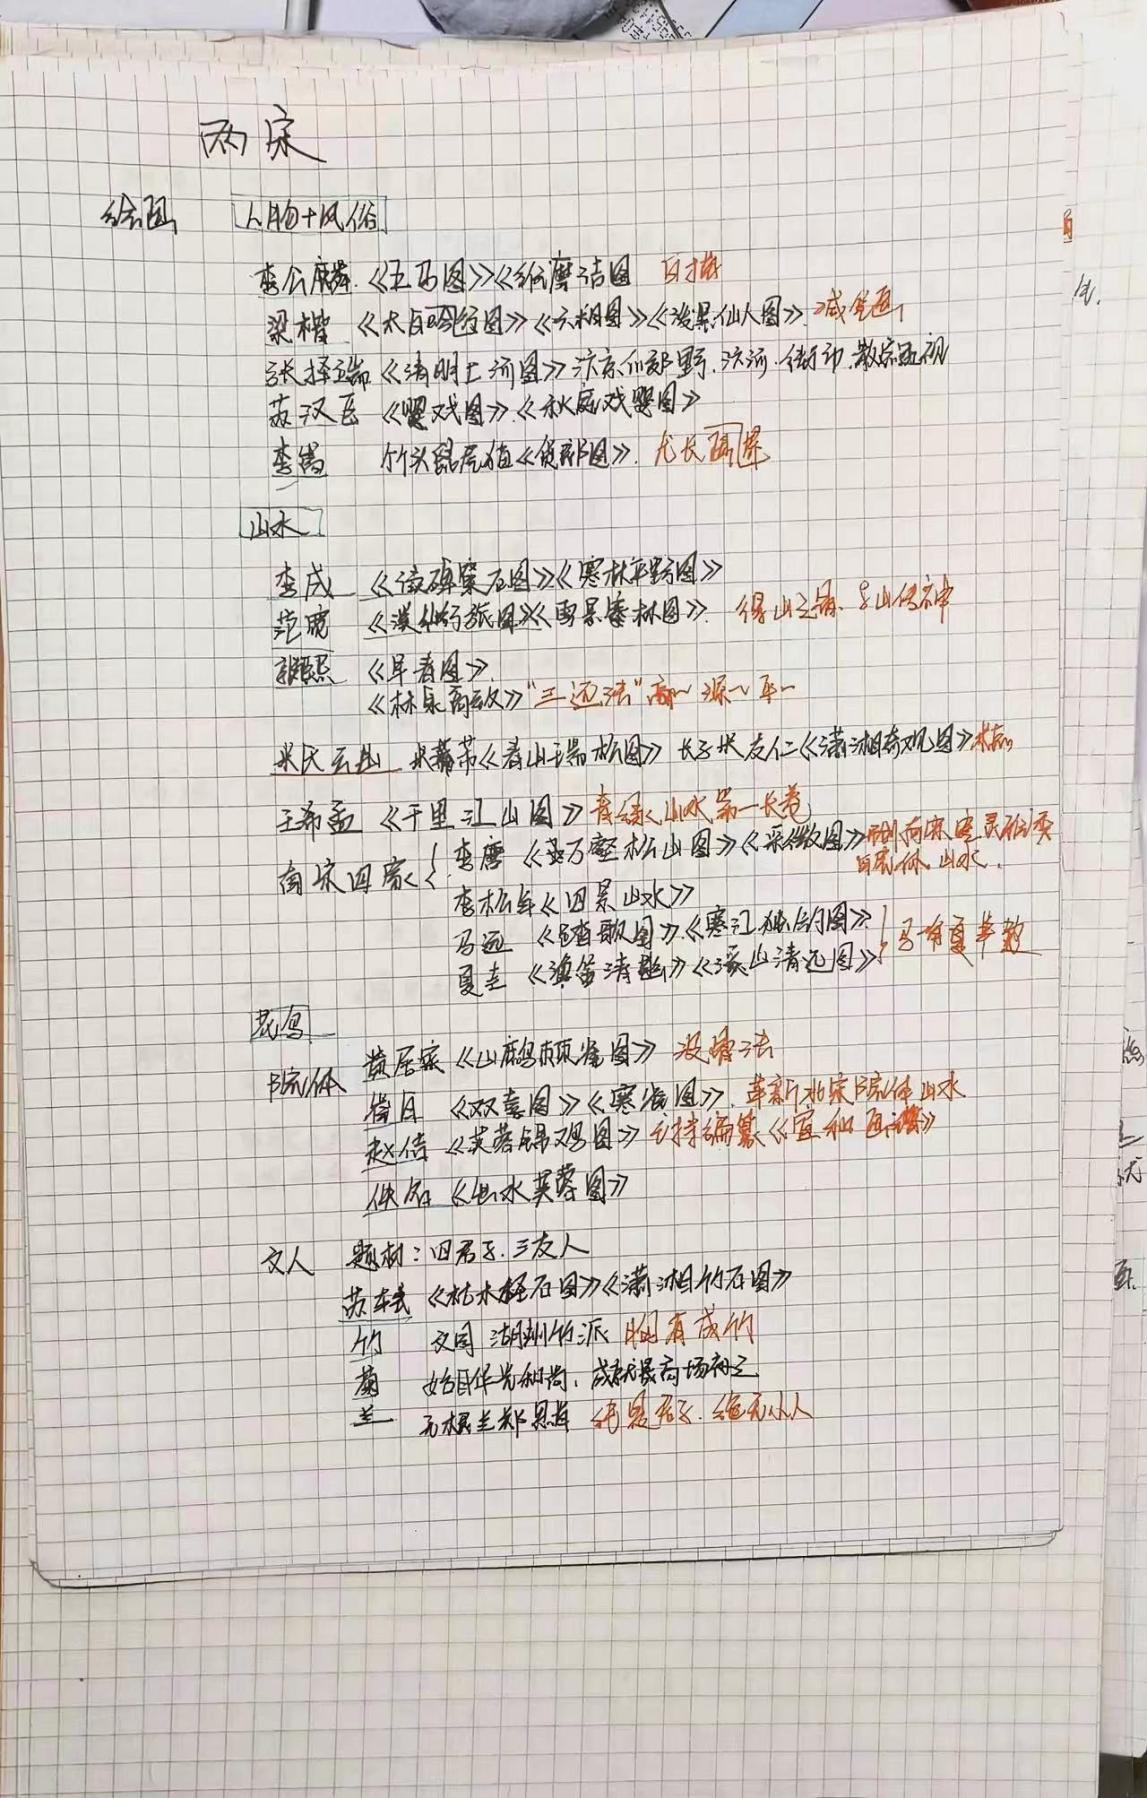 两宋
绘画 人物+风俗
李公麟.《五马图》《维摩诘图 白描
梁楷 《太白吟行图》《六祖图》《泼墨仙人图》. 减笔画
张择端 《清明上河图》汴京 郊野.汴河.街市.散点透视
苏汉臣 《婴戏图》.《秋庭戏婴图》
李嵩 《货郎图》. 尤长 界
山水
李成 《读碑窠石图》《寒林平野图》
范宽 《溪山行旅图》《雪景寒林图》. 得山之骨. 与山传神
郭熙 《早春图》.
《林泉高致》"三远法"高~ 深~ 平~
米氏云山 米芾《春山瑞松图》 长子米友仁《潇湘奇观图》
王希孟 《千里江山图》青绿山水第一长卷
南宋四家{ 李唐 《万壑松山图》《采微图》
院体 山水.
李松年《四景山水》
马远 《踏歌图》.《寒江独钓图》
夏圭 《清 》《溪山清远图》} 马 夏半
花鸟
院体 黄居寀《山鹧 雀图》
崔白 《双喜图》《寒雀图》. 革新北宋院体山水
赵佶 《芙蓉锦鸡图》主持编纂《宣和画谱》
佚名 《出水芙蓉图》
文人 题材:四君子.三友人
苏轼 《枯木怪石图》《潇湘竹石图》
竹 文同 湖州竹派 胸有成竹
菊 始自华光和尚. 成就最高扬
兰 无根兰郑思肖 纯是君子.绝无小人